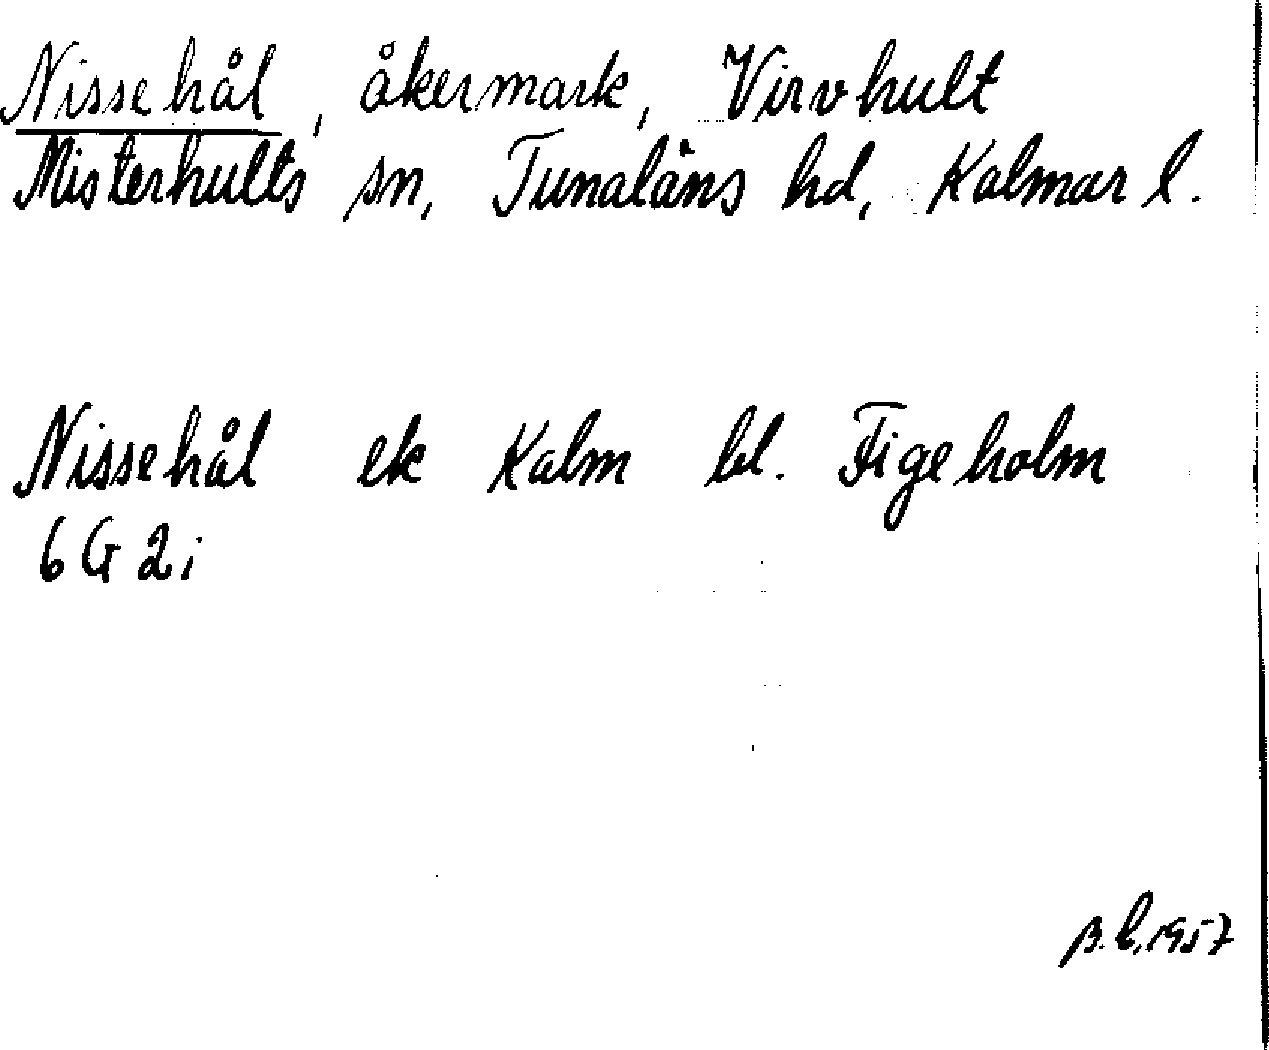 Nissehål, åkermark, Virvhult
Misterhults sn, Tunaläns hd, Kalmar l.
Nissehål ek Kalm bl. Figeholm
6G 2i
1957